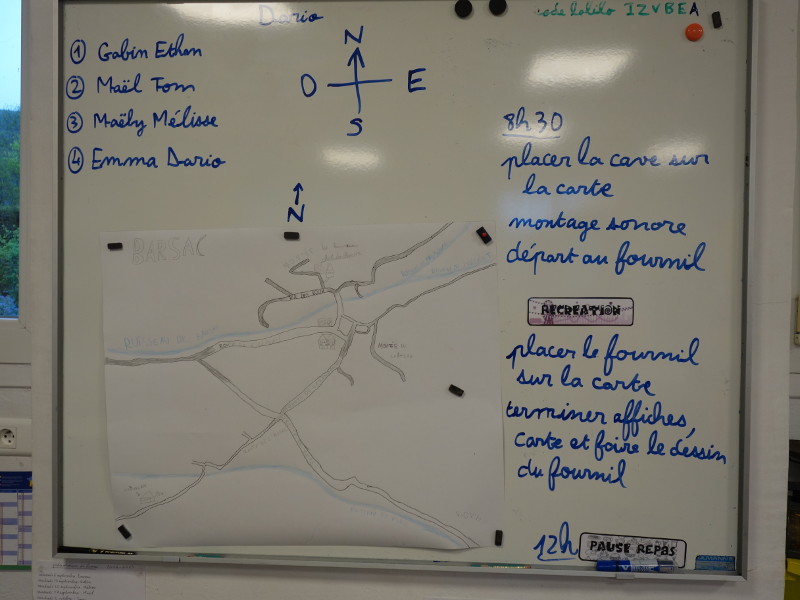 Dario
① Gabin Ethan
② Maël Tom
③ Maëly Mélisse
④ Emma Dario
N
O E
S
N
BARSAC
IZVBEA
8h30
placer la cave sur
la carte
montage sonore
départ au fournil
RECREATION
placer le fournil
sur la carte
terminer affiches,
carte et faire le dessin
du fournil
12h PAUSE REPAS